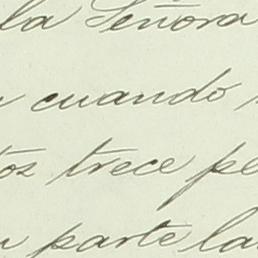 la Señora
cuando
tos trece pe
parte la